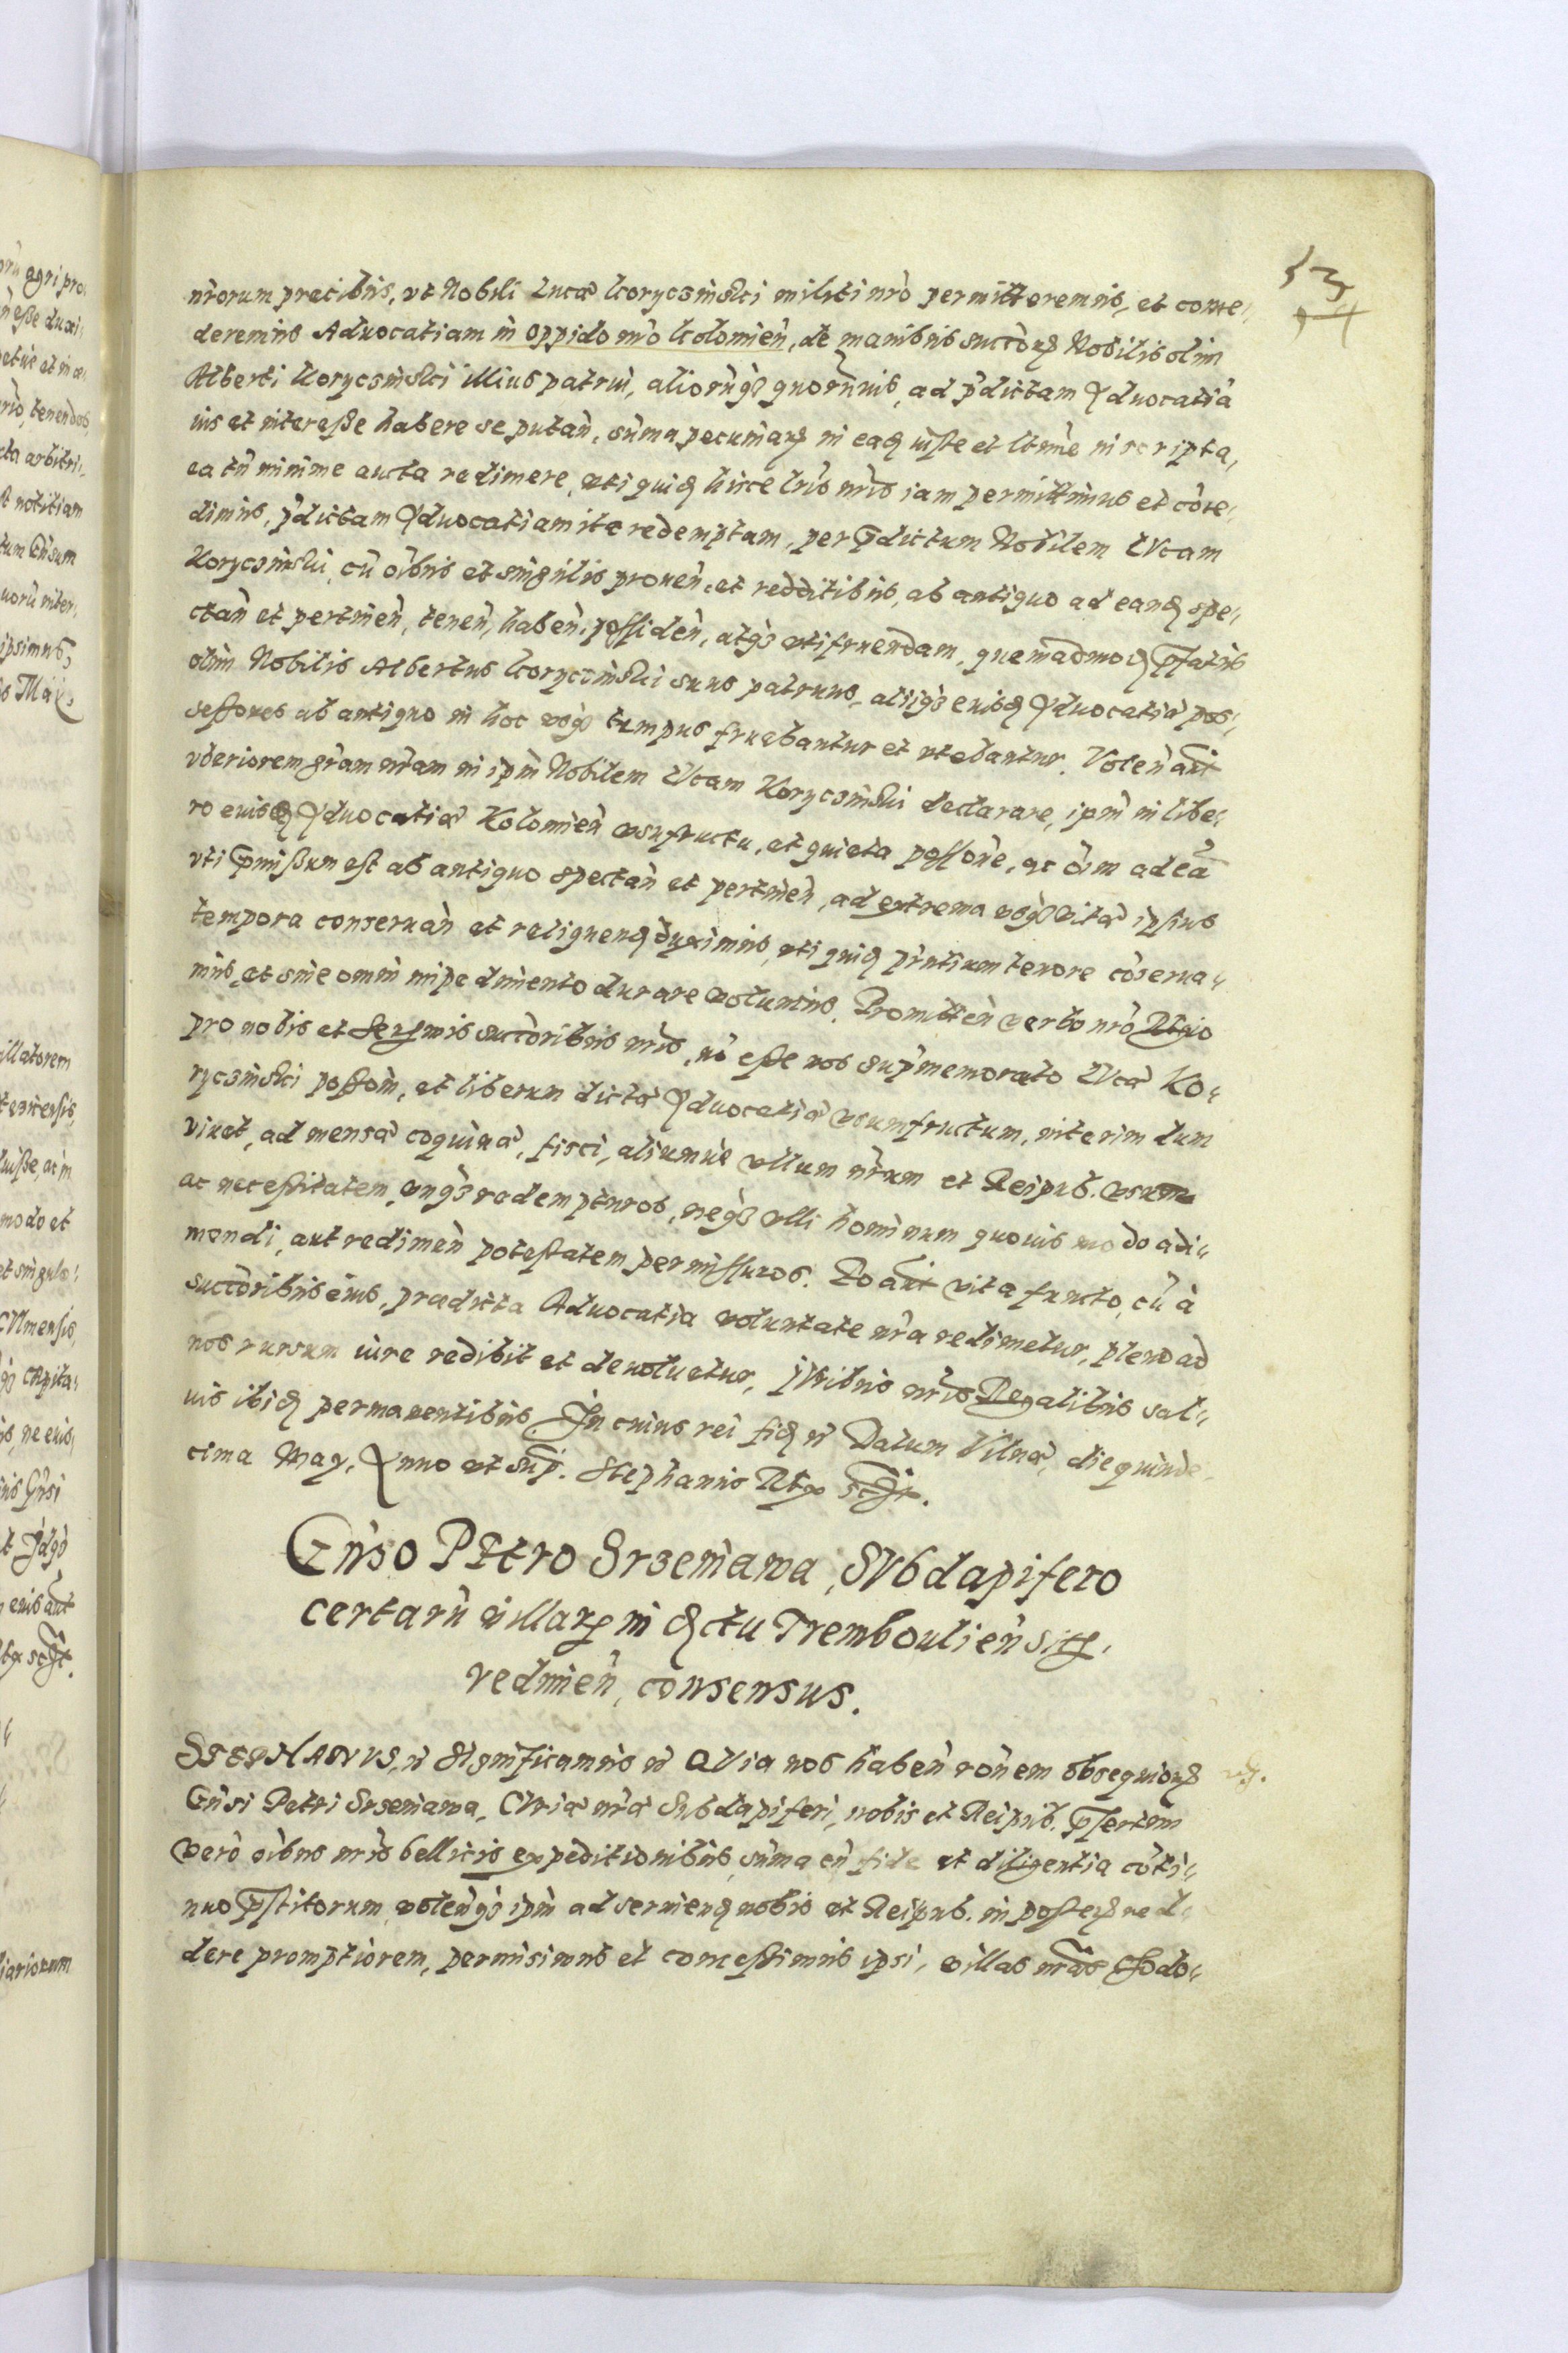 53
4
nrorum precibus, vt Nobili Lucæ Koryczinski militi nro permitteremus, et conce-
deremus Aduocatiam in oppido nro Kolomien, de manibus succorum Nobilis olim
Alberti Koryczinski illius patrui, aliorumq3 quorumuis, ad pdictam Aduocatiã
ius et interesse habere se putan, suma pecuniarum in eadem iuste et ltime inscripta,
ea tn minime aucta redimere, vti quidem hisce lris nris iam permittimus et conce-
dimus, pdictam Aduocatiam ita redemptam, per pdictum Nobilem LVcam
Koryczinski, cũ oibus et singulis prouen, et redditibus, ab antiquo ad eandem spe-
ctan et pertinen, tenen, haben, possiden, atq3 vtifruendam, quemadmodum pfatus
olim Nobilis Albertus Koryczinski suus patruus, alijq3 eiusdem Aduocatiæ pos-
sessores ab antiquo in hoc vsq3 tempus fruebantur et vtebantur. Volen aut
vberiorem gram nram in ipm Nobilem LVcam Koryczinski declarare, ipm in libe-
ro eiusdem Aduocatiæ Kolomien vsufructu, et quieta possone, ac oim ad eã
vti pmissum est ab antiquo spectan et pertinen, ad extrema vsq3 vitæ ipsius
tempora conseruan et relinquendum duximus, vti quidem pntium tenore coserua-
mus, et sine omni impedimento durare volumus. Promitten verbo nro Regio
pro nobis et Sermis succoribus nris, no esse nos supmemorato LVcæ Ko-
ryczinski possom, et liberum dictæ Aduocatiæ vsumfructum, interim dum
viuet, ad mensæ coquinæ, fisci, aliumue vllum nrum et Reipub. vsum
ac necessitatem, vnq3 redempturos, neq3 vlli hominum quouis modo adi-
mendi, aut redimen potestatem permissuros. Eo aut vita functo, cũ à
succoribus eius, prædicta Aduocatia voluntate nra redimetur, pleno ad
nos rursum iure redibit et deuoluetur, IVribus nris Regalibus sal-
uis ibidem permanentibus. In cuius rei fidem et Datum Vilnæ, die quinde-
cima May, Anno vt sup. Stephanus Rex sst.
Gnso PEtro Srzeniawa, SVbdapifero
certarũ villarum in dictu Trembowlien sitarum,
redimen, consensus.
STEPHANVS, et Significamus et QVia nos haben ronem obsequiorum
Gnsi Petri Srzeniawa, CVriæ nræ Subdapiferi, nobis et Reipub. psertim
vero oibus nris bellicis expeditionibus, suma cũ fide et diligentia coti-
nuo pstitorum, volenq3 ipm ad seruiendum nobis et Reipub. in posterum red-
dere promptiorem, permisimus et concessimus ipsi, villas nras